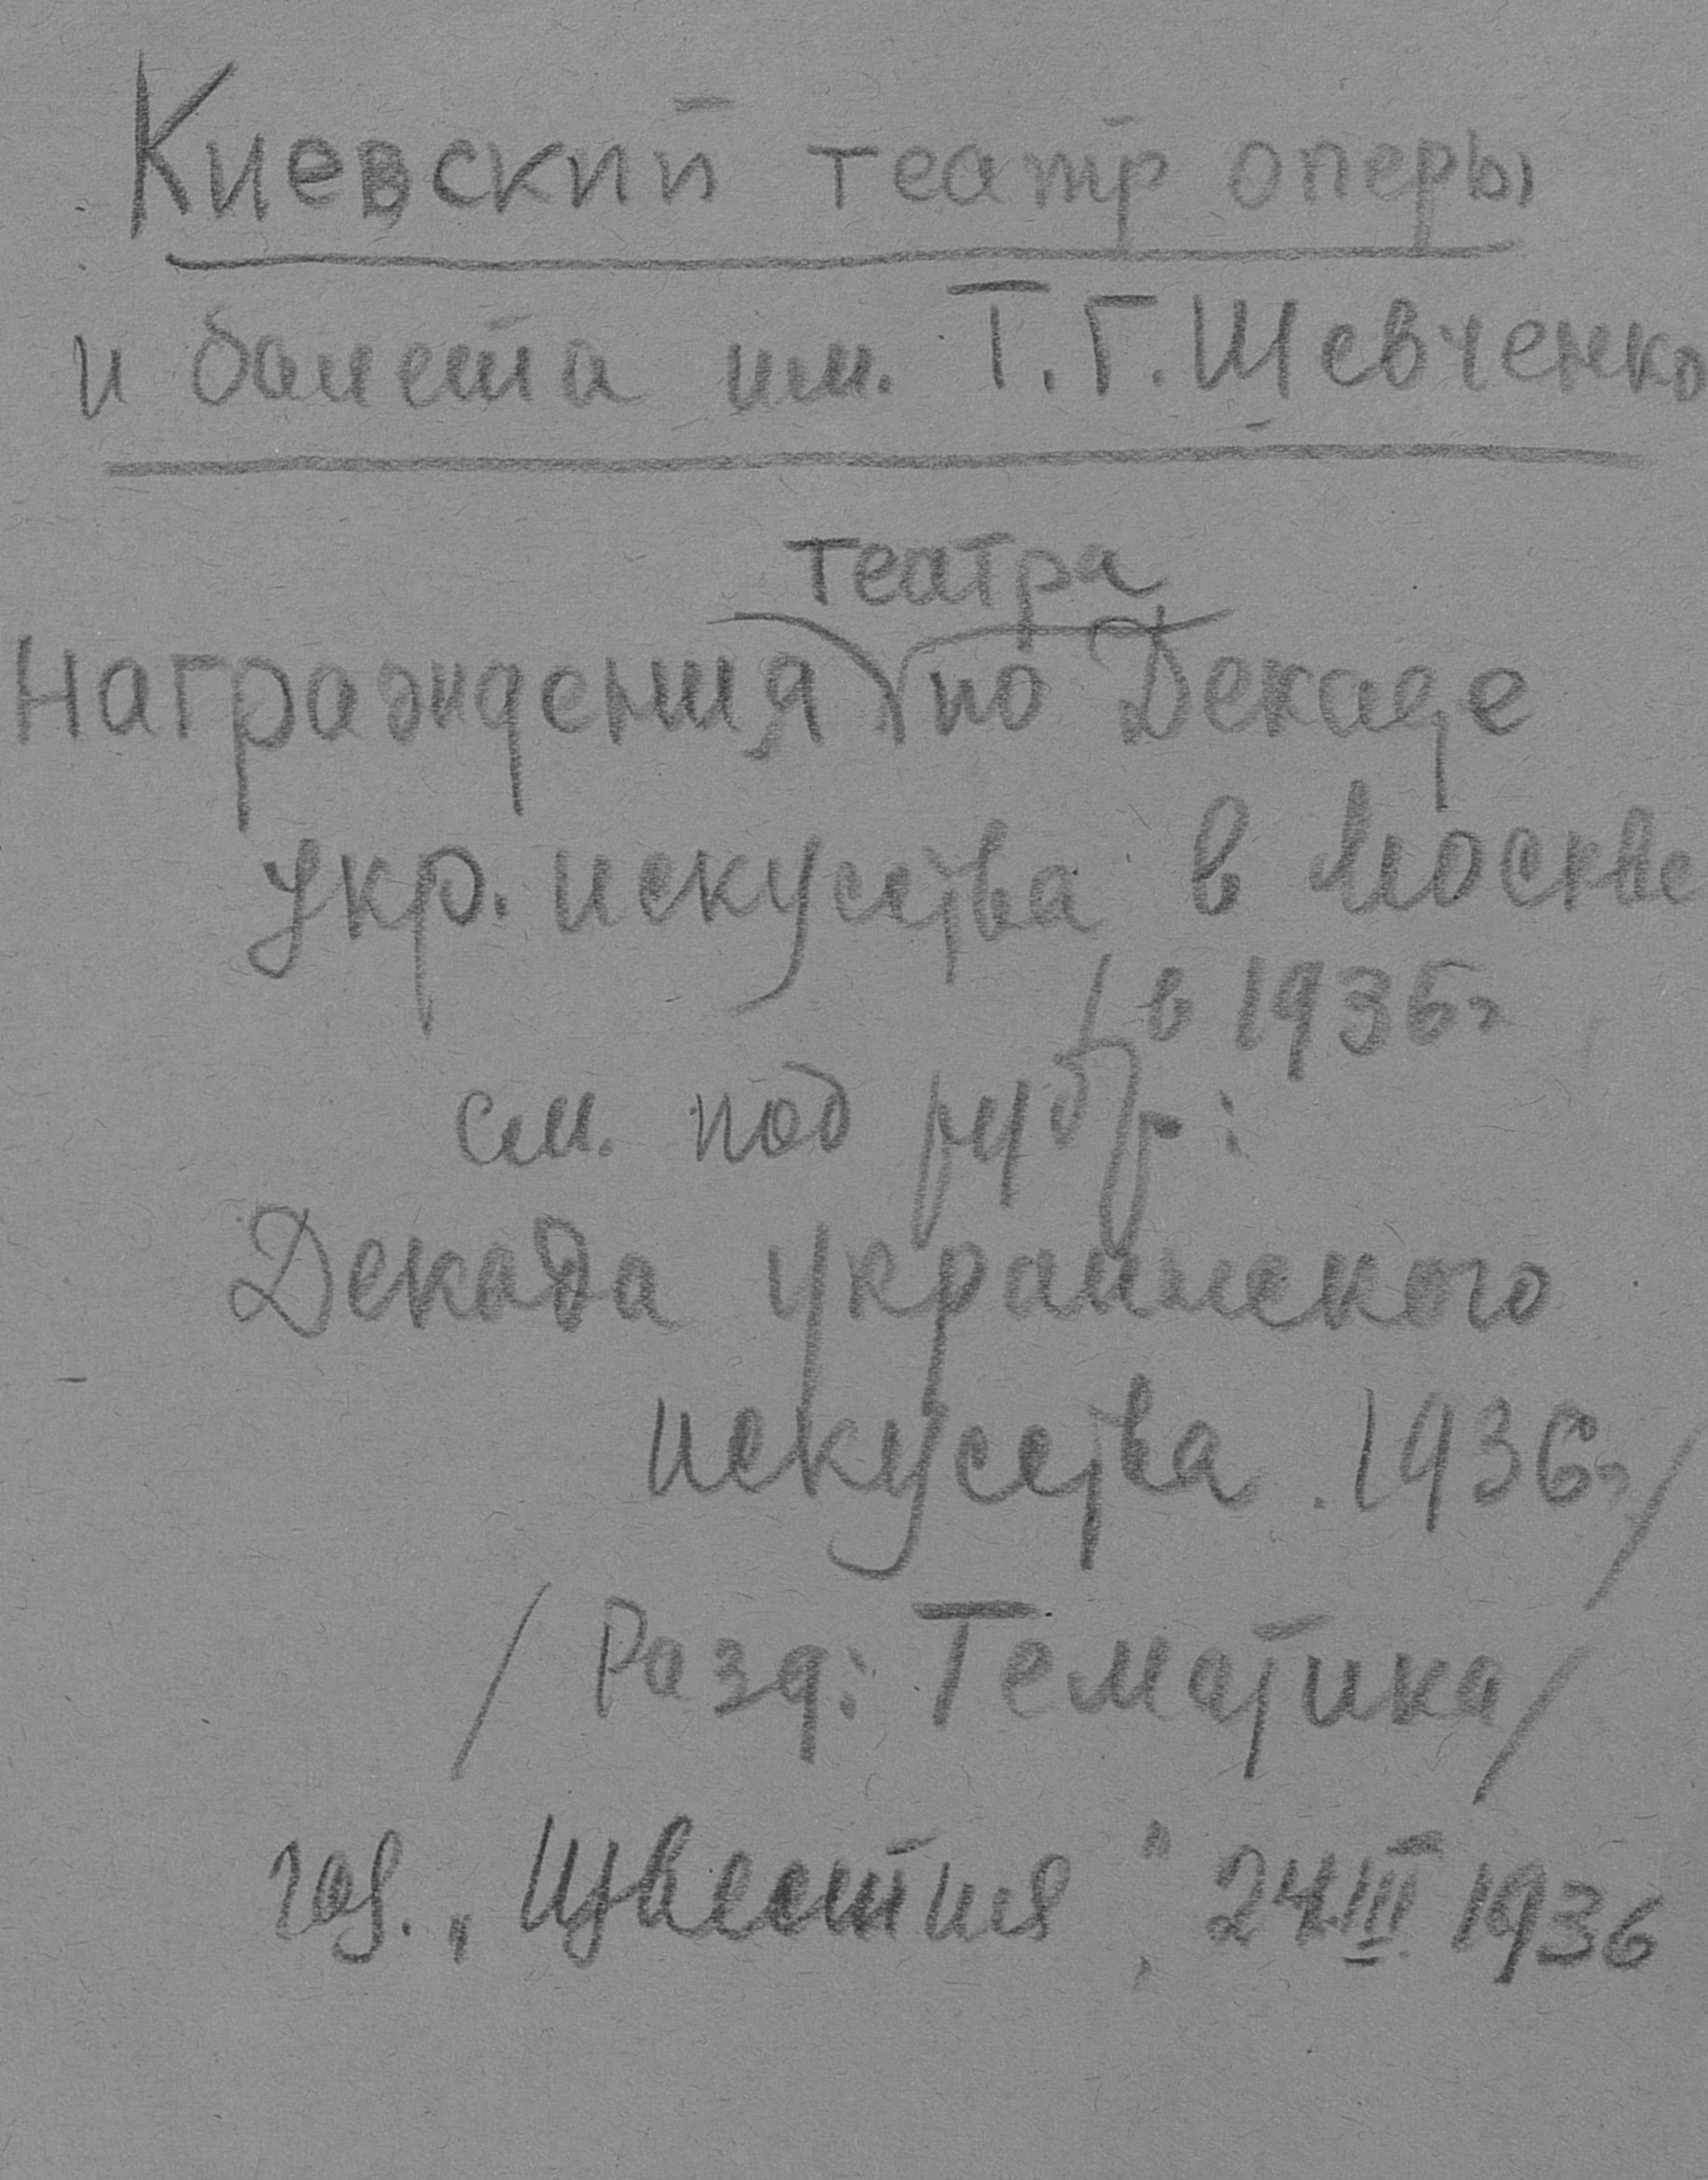 Киевский театр оперы
и балета им. Т.Г. Шевченко
театра
Награждения по Декаде
укр. искусства в Москве
/ в 1936 г
см. под рубр.:
Декада украинского
искусства. 1936 г /
/ Разд: Тематика /
газ. „Известия", 24 III 1936